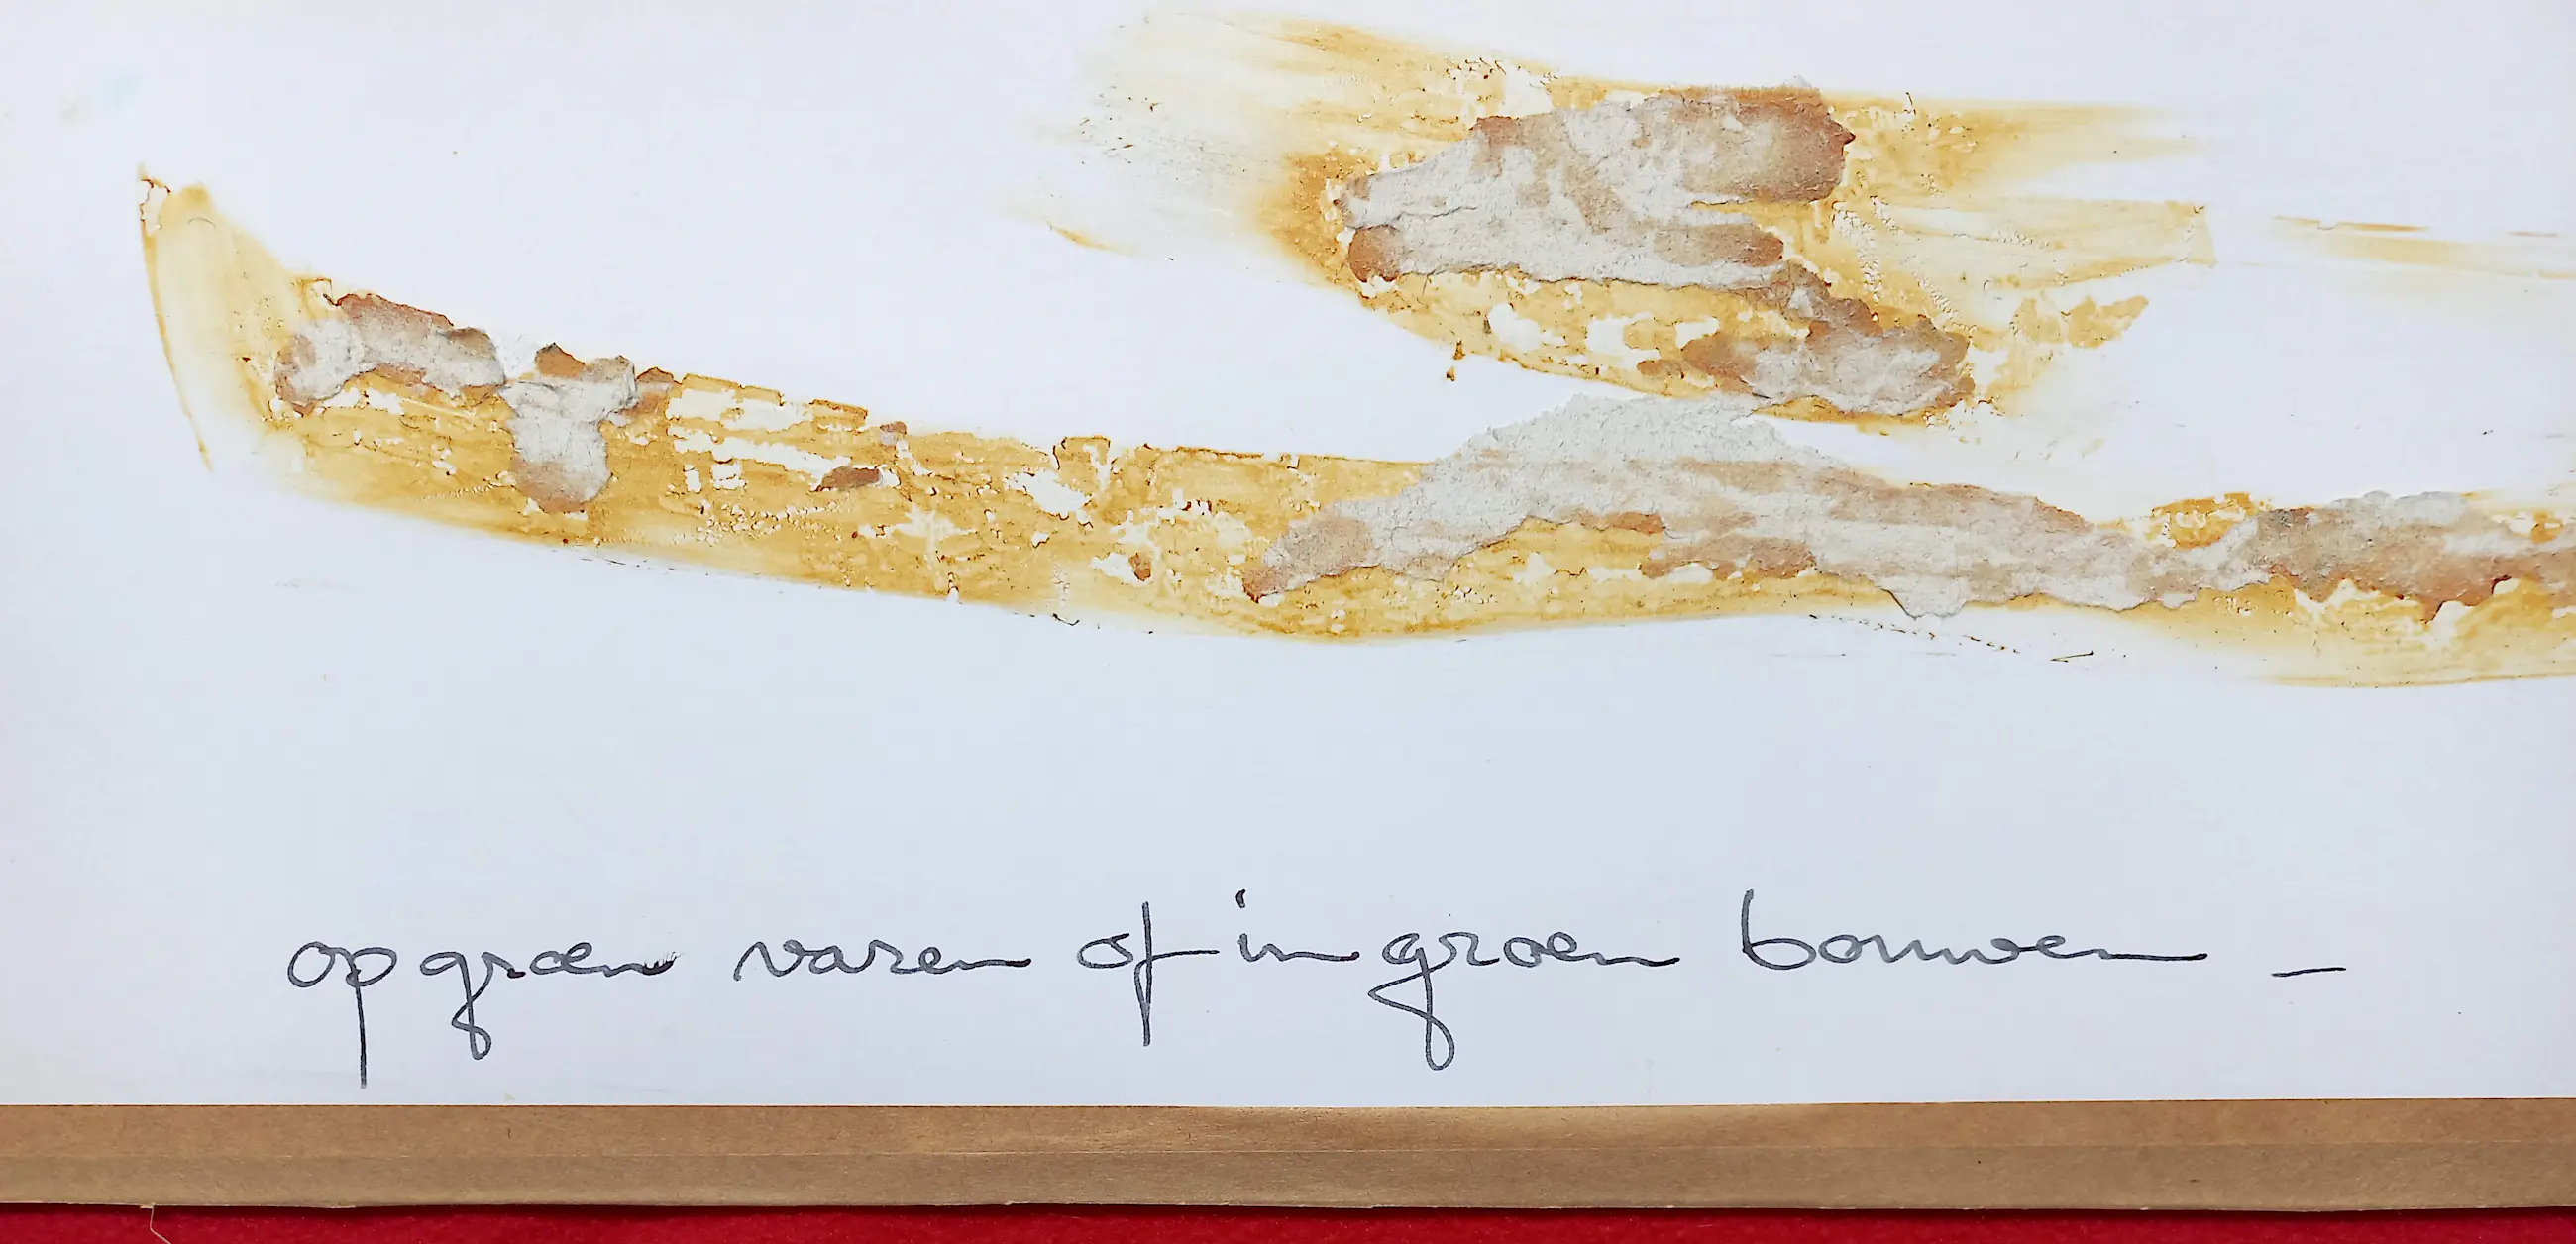 op groen varen of in groen bouwen –